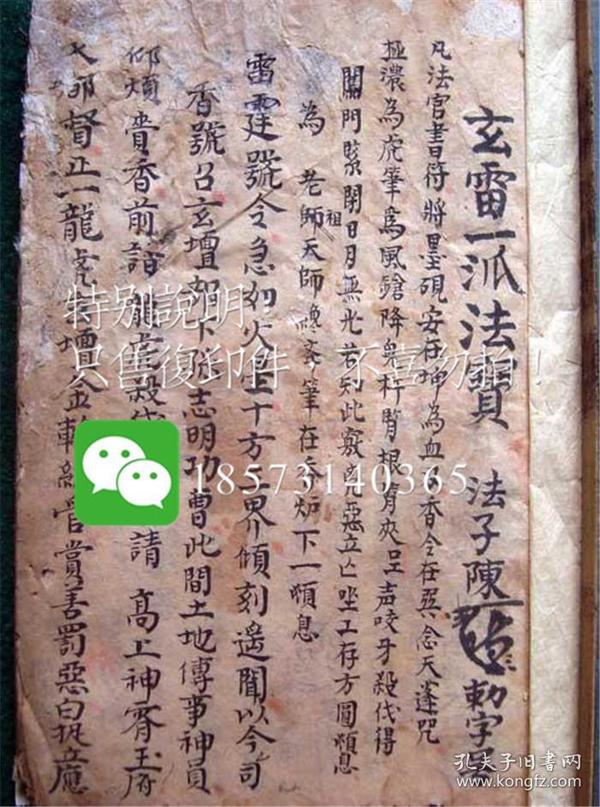 玄雷一派法寶 法子陳 勅字
凡法官書符將墨硯安在坤為血 香令在巽念天蓬咒
極濃為虎筆為風鎗降魚杆腎根育夾呈声咬牙殺伐得
關門緊閉日月無光若知此竅鬼惡立亡坐工存方圓煩息
為 老師祖天師 筆在香炉下一煩息
雷霆號令急如火坐十方 界傾刻遥聞以今司
香號召玄壇部下 志明功曹此間土地傳事神員
仰煩賫香前詣龍虎殺伐 請 高上神霄玉府
大部督正一龍虎 壇金輪 賞善罰惡
特别說明，
只售復印件 不喜勿拍！
18573140365
孔夫子旧书网
www.kongfz.com